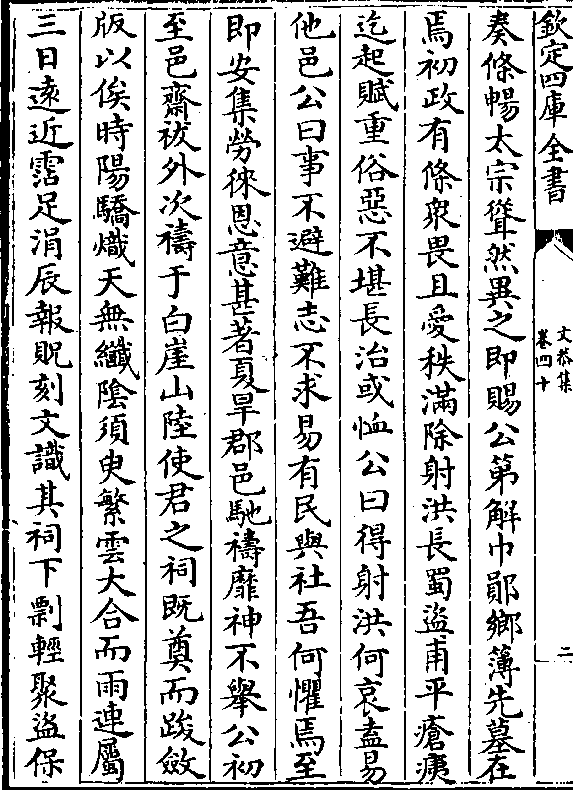 欽定四庫全書
文恭集
卷四十
二
奏條暢太宗聳然異之即賜公第解巾鄖鄉簿先墓在
焉初政有條衆畏且愛秩滿除射洪長蜀盜甫平瘡痍
迄起賦重俗惡不堪長治或恤公曰得射洪何哀盍易
他邑公曰事不避難志不求易有民與社吾何懼焉至
即安集勞徠恩意甚著夏旱郡邑馳禱靡神不舉公初
至邑齋祓外次禱于白崖山陸使君之祠既奠而跋斂
版以俟時陽驕熾天無纖陰須臾繁雲大合而雨連屬
三日遠近霑足涓辰報貺刻文識其祠下剽輕聚盜保